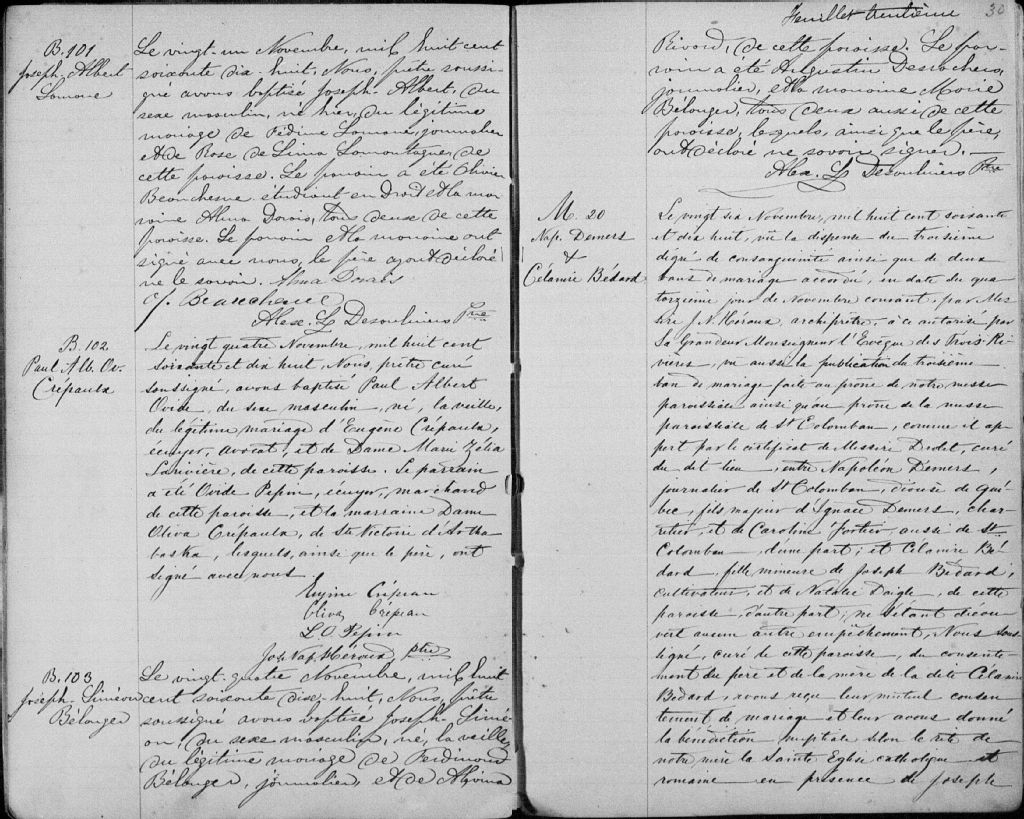 B. 101
Joseph Albert
Lamane
Le vingt-un Novembre, mil huit cent
soixante dix-huit, Nous, prêtre soussi-
gné avons baptisé Joseph-Albert, du
sexe masculin, né hier, du légitime
mariage de Lamane, journalier
et de Rose de Lima Lamontagne, de
cette paroisse. Le parrain a été Olivier
Beauchesne étudiant en Droit et la mar
raine Alma Dorais, tous deux de cette
paroisse. Le parrain et la marraine ont
signé avec nous, le père ayant déclaré
ne le savoir. Alma Dorais
O. Beauchesne
Alex. L. Desaulniers Ptre
B. 102
Paul Alb. Ov.
Crépault
Le vingt quatre Novembre, mil huit cent
soixante et dix huit, Nous, prêtre curé
soussigné, avons baptisé Paul Albert
Ovide, du sexe masculin, né, la veille,
du légitime mariage d'Eugène Crépault,
écuyer, avocat, et de Dame Marie Zélia
Larivière, de cette paroisse. Le parrain
a été Ovide Pepin, écuyer, marchand
de cette paroisse, et la marraine Dame
Oliva Crépault, de Ste Victoire d'Artha
baska, lesquels, ainsi que le père, ont
signé avec nous.
Eugène Crépeau
Oliva Crépeau
L. O. Pépin
Jos. Nap. Héroux, ptre
B. 103
Joseph-Siméon
Bélanger
Le vingt-quatre Novembre, mil huit
cent soixante dix-huit, Nous, prêtre
soussigné avons baptisé Joseph-Simé-
on, du sexe masculin, né, la veille,
du légitime mariage de Ferdinand
Bélanger, journalier, et de
Feuillet trentième
30
Rivard, de cette paroisse. Le par-
rain a été Augustin Desrochers,
journalier, et la marraine Marie
Bélanger, tous deux aussi de cette
paroisse, lesquels, ainsi que le père,
ont déclaré ne savoir signer.
Alex. L. Desaulniers Ptre
M. 20
Nap. Demers
&
Célamire Bédard
Le vingt six Novembre, mil huit cent soixante
et dix huit, vu la dispense du troisième
degré de consanguinité ainsi que de deux
bans de mariage accordé, en date du qua
torzième jour de Novembre courant, par Mes
sire J. N. Héroux, archiprêtre, à ce autorisé par
Sa Grandeur Monseigneur l'Evêque des Trois-Ri-
vières, vu aussi la publication du troisième
ban de mariage faite au prône de notre messe
paroissiale ainsi qu'au prône de la messe
paroissiale de St Colomban, comme il ap-
pert par le certificat de Messire Drolet, curé
du dit lieu, entre Napoléon Demers,
journalier de St Colomban, diocèse de Qué-
bec, fils majeur d'Ignace Demers, char-
retier, et de Caroline Fortier aussi de St
Colomban, d'une part; et Célamire Bé
dard, fille mineure de Joseph Bédard,
cultivateur, et de Natalie Daigle, de cette
paroisse, d'autre part; ne s'étant décou
vert aucun autre empêchement, Nous sous
signé, curé de cette paroisse, du consente-
ment du père et de la mère de la dite Célamire
Bédard, avons reçu leur mutuel consen
tement de mariage et leur avons donné
la bénédiction nuptiale selon le rite de
notre mère la Sainte Eglise catholique et
romaine en présence de Joseph